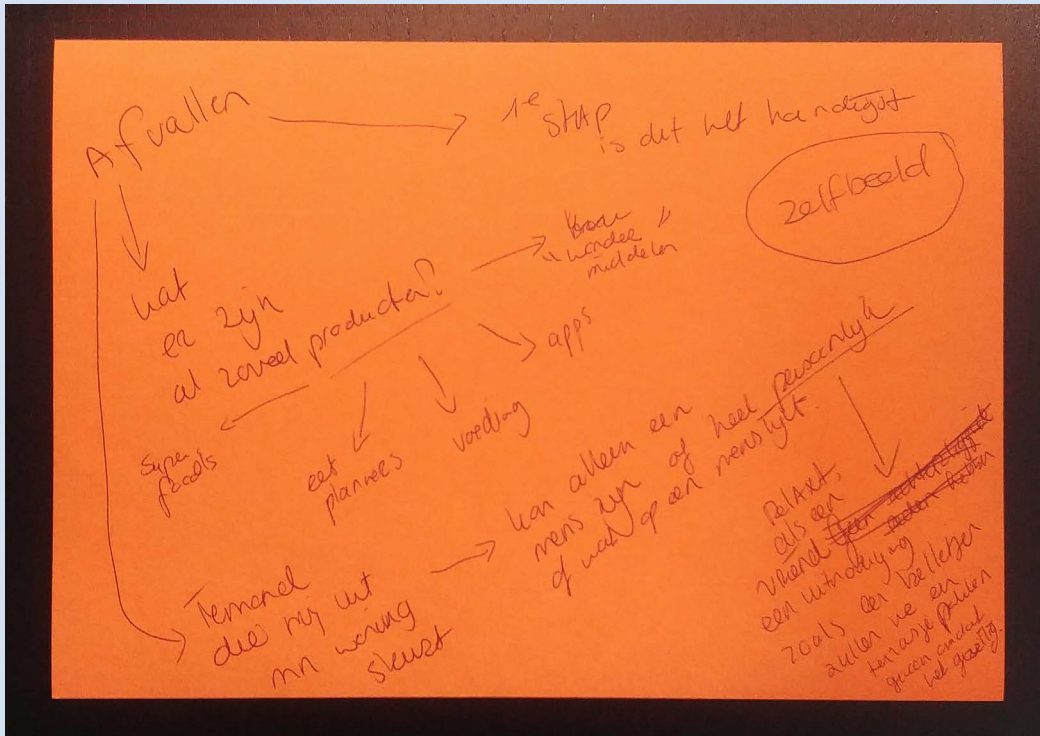 Afvallen
1e STAP
is dit het handigst
zelfbeeld
wat
er zijn
al zoveel producten?
"wonder"
middelen
apps
voeding
eet
planners
Super
foods
Iemand
die mij uit
mn woning
sleurt
kan alleen een
mens zijn of heel persoonlijk
of wat op een mens lijkt.
RelAxt,
als een
vriend
een uitnodiging
zoals een belletje
zullen we een
terrasje pakken
gewoon omdat
het gezellig.